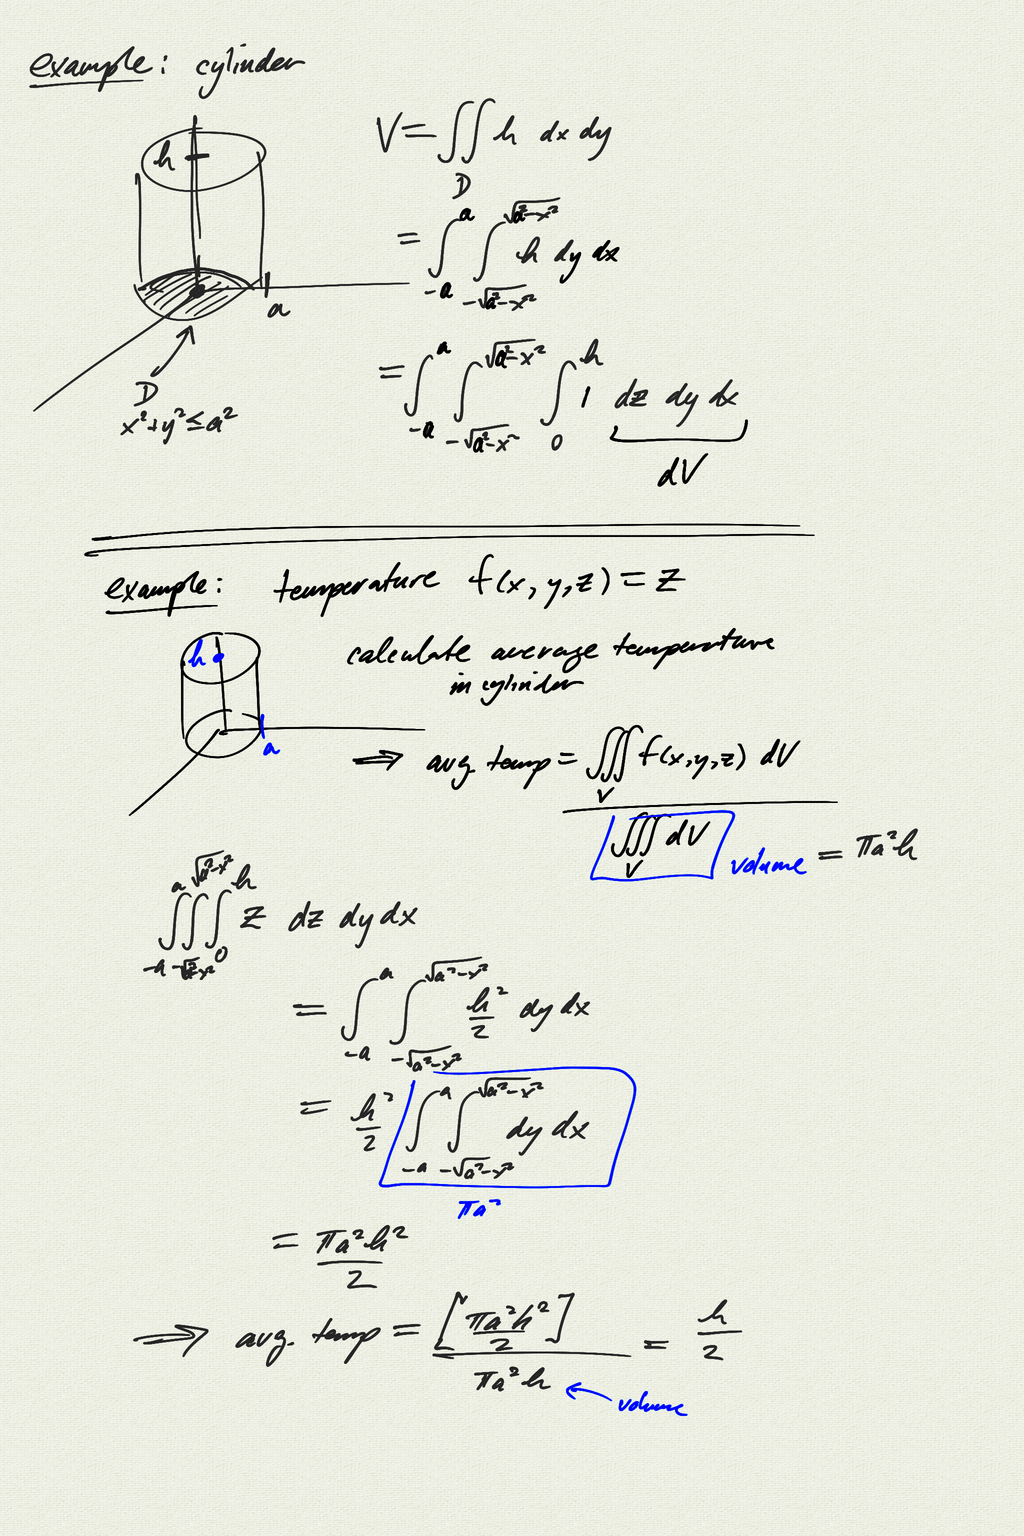 example: cylinder
h
a
D
x²+y² ≤ a²
V = ∬_D h dx dy
= ∫_{-a}^{a} ∫_{-√(a²-x²)}^{√(a²-x²)} h dy dx
= ∫_{-a}^{a} ∫_{-√(a²-x²)}^{√(a²-x²)} ∫_0^h 1 dz dy dx
dV
example: temperature f(x,y,z) = z
h
a
calculate average temperature
in cylinder
⇒ avg. temp = ∭_V f(x,y,z) dV
∭_V dV volume = πa²h
∫_{-a}^{a} ∫_{-√(a²-x²)}^{√(a²-x²)} ∫_0^h z dz dy dx
= ∫_{-a}^{a} ∫_{-√(a²-x²)}^{√(a²-x²)} h²/2 dy dx
= h²/2 ∫_{-a}^{a} ∫_{-√(a²-x²)}^{√(a²-x²)} dy dx
πa²
= πa²h²/2
⇒ avg. temp = [πa²h²/2] / πa²h = h/2
volume